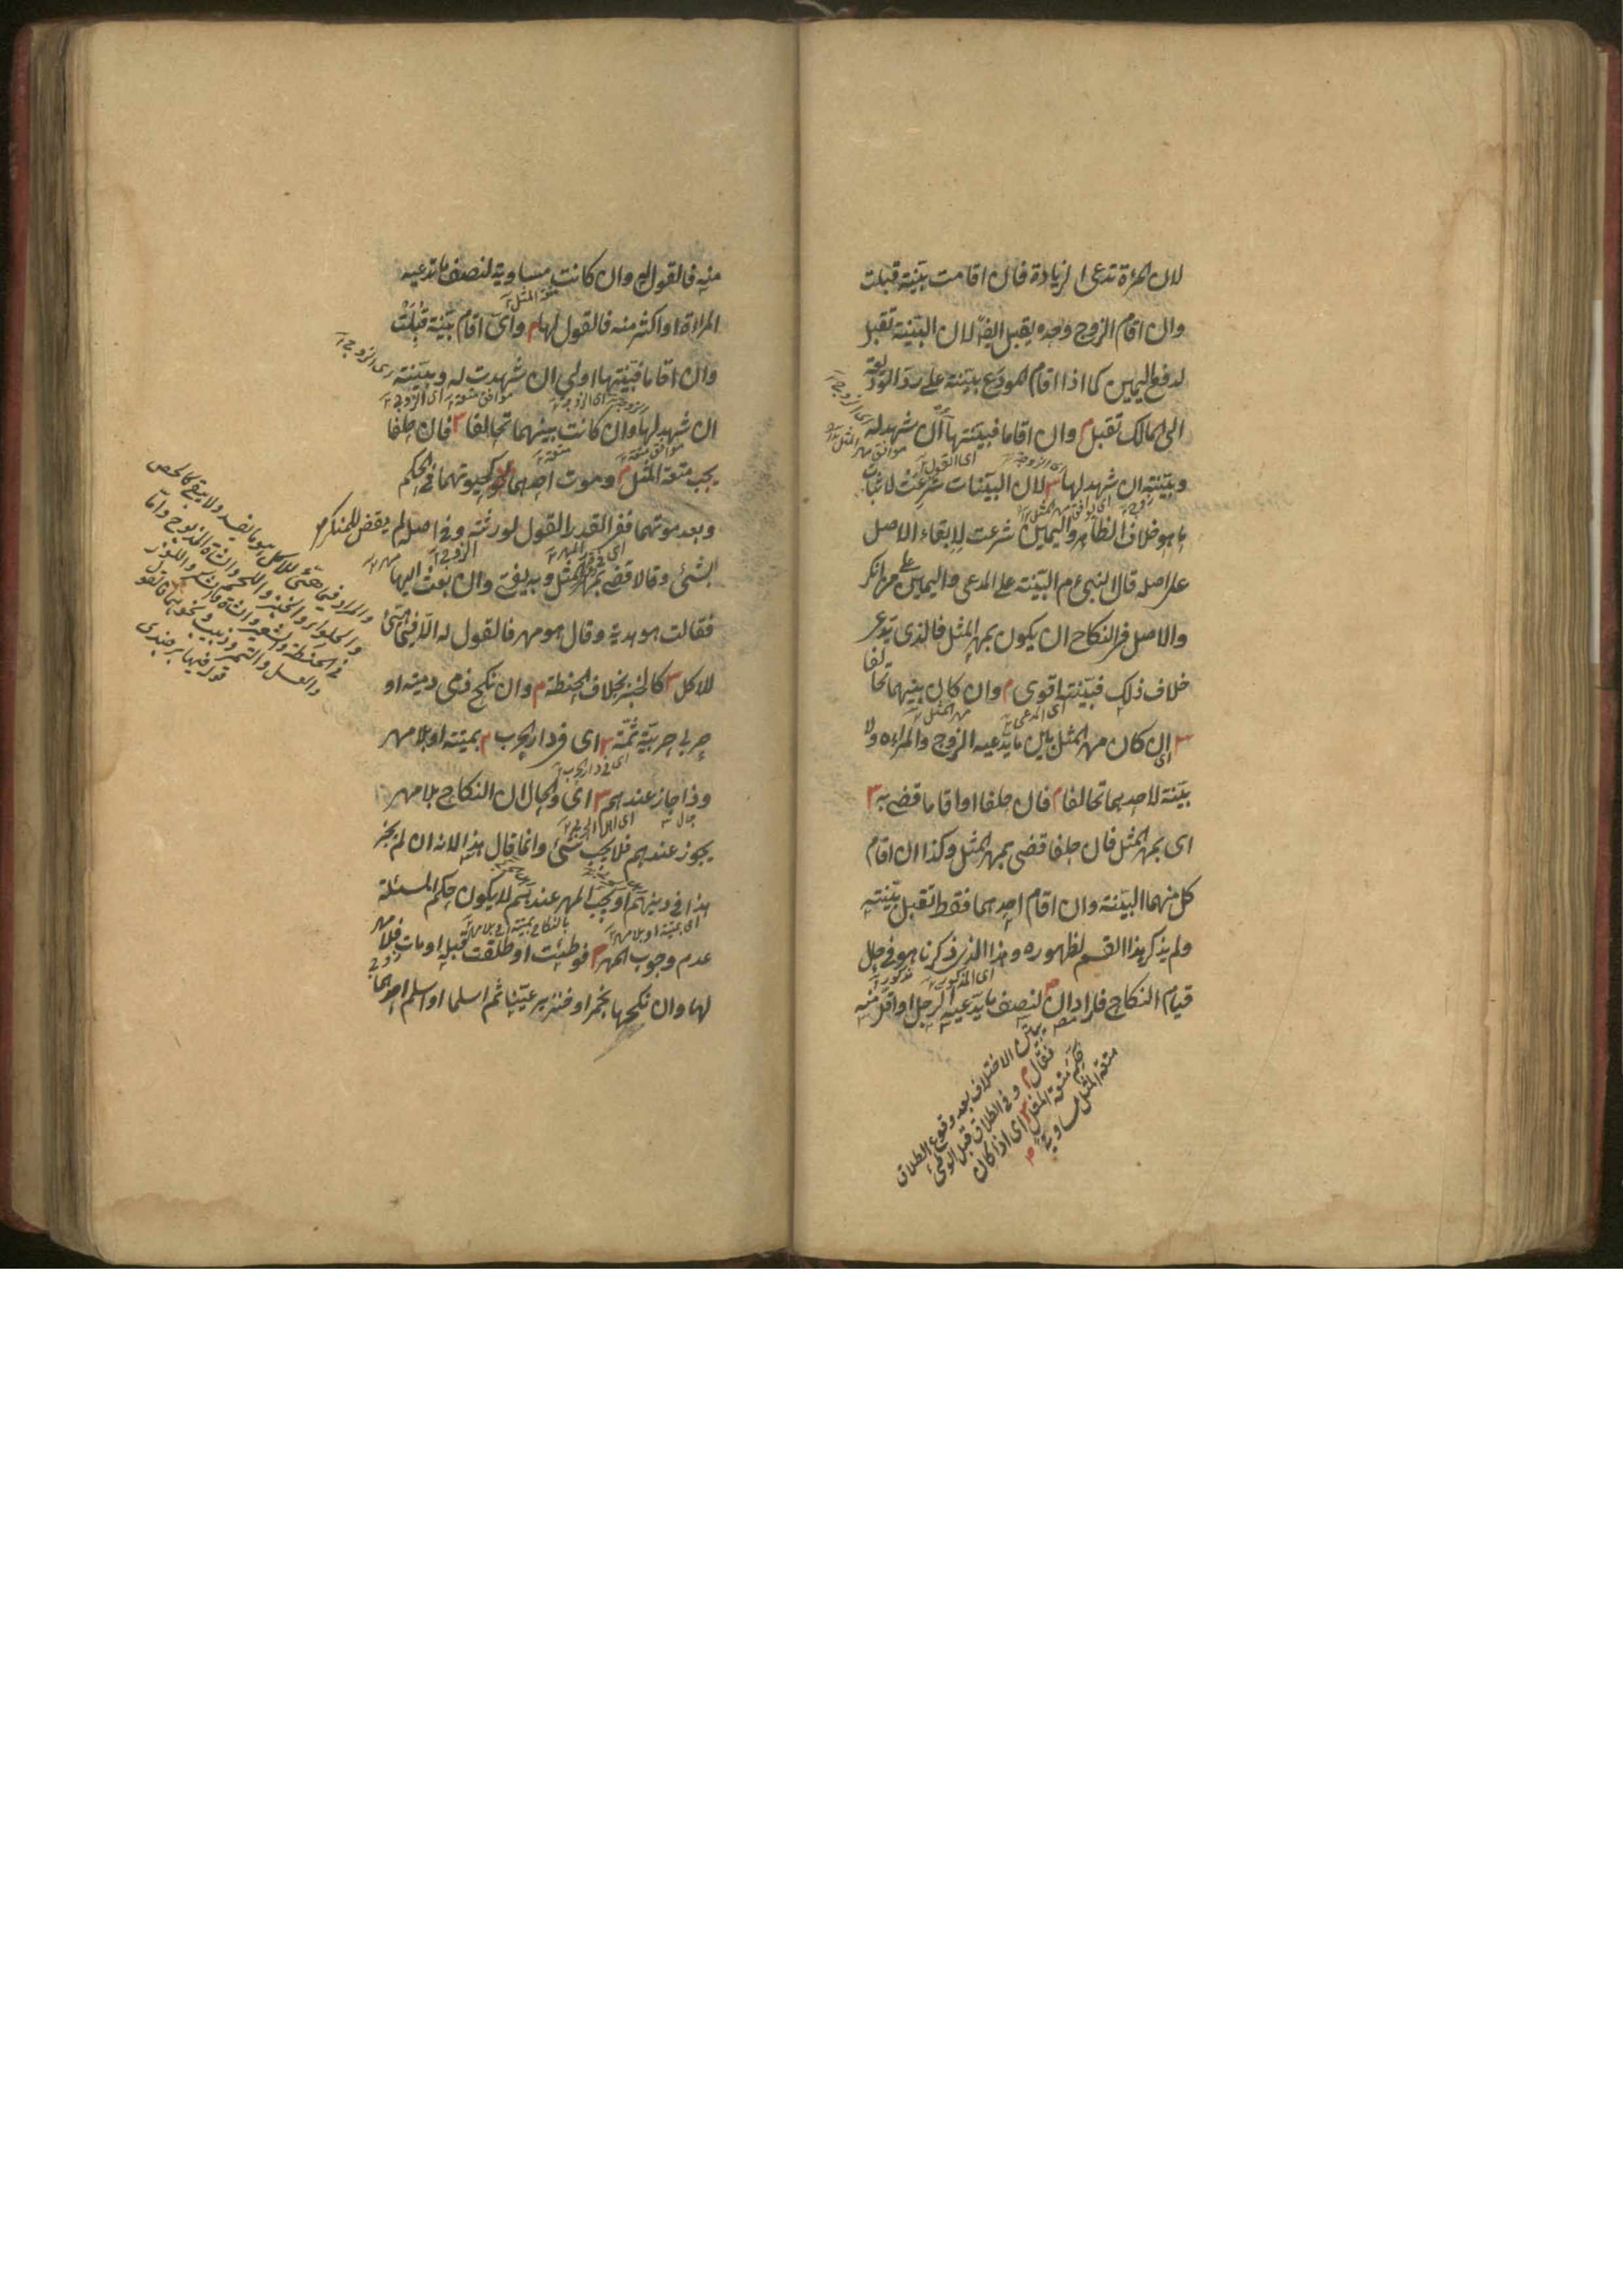 لان المرءة تدعى الزيادة فان اقامت بيّنة قبلت
وان اقام الزوج وحده يقبل ايضًا لان البيّنة تقبل
لدفع اليمين كما اذا اقام المودَع بيّنة على ردّ الوديعة
الى المالك تقبل م وان اقاما فبيّنتها ان شهد له
وبيّنته ان شهد لها ش لان البيّنات شرعت لاثبات
ما هو خلاف الظاهر واليمين شرعت لابقاء الاصل
على اصله قال النبي عم البيّنة على المدعى واليمين على من انكر
والاصل فى النكاح ان يكون بمهر المثل فالذى يدّعى
خلاف ذلك فبيّنته اقوى م وان كان بينهما تحالفا
ش اى ان كان مهر المثل بين ما يدّعيه الزوج والمراءه ولا
بيّنة لاحدهما تحالفا م فان حلفا او اقاما قضى به ش
اى بمهر المثل فان حلفا قضى بمهر المثل وكذا ان اقام
كل منهما البيّنة وان اقام احدهما فقط تقبل بيّنته
ولم يذكر هذا القسم لظهوره وهذا الذى ذكرنا هو فى حال
قيام النكاح فاراد ان
بيان الاختلاف بعد وقوع الطلاق
فقال م وفى الطلاق قبل الوطئ
حكّم متعة المثل ش اى اذا كان
متعة المثل مساوية
لنصف ما يدّعيه الرجل او اقل منه
منه فالقول له وان كانت مساوية لنصف ما تدعيه
المراءة او اكثر منه فالقول لها م واىّ اقام بيّنة قبلت
وان اقاما فبيّنتها اولى ان شهدت له وبيّنته
ان شهد لها وان كانت بينهما تحالفا ش فان حلفا
يجب متعة المثل م وموت احدهما كحيوتهما فى الحكم
وبعد موتهما ففى القدر القول لورثته وفى اصله لم يقض للمنكر
بشئ وقالا قضى بمهر المثل وبه يفتى وان بعث اليها
فقالت هو هدية وقال هو مهر فالقول له الّا فيما هيّئ
للاكل ش كالخبز بخلاف الحنطة م وان نكح ذمى ذمية او
حربى حربيّة ثمّة ش اى فى دار الحرب م بميتة او بلا مهر
وذا جاز عندهم ش اى والحال ان النكاح بلا مهر
يجوز عندهم فلا يجب شئ وانما قال هذا لانه ان لم يجز
هذا فى دينهم او يجب المهر عندهم لا يكون حكم المسئلة
عدم وجوب المهر م فوطئت او طلقت قبله او مات فلا مهر
لها وان نكحها بخمر او خنزير عيّنا ثم اسلما او اسلم احدهما
والمراد فيما هيّئ للاكل هو ما يفسد ولا يبقى كالحمص
والحلواء والخبز واللحم والشاة المذبوح وامّا
فى الحنطة والشعير والشاة واللوز
والعسل والتمر وزبيب ونحو
قوله فيها برجندى